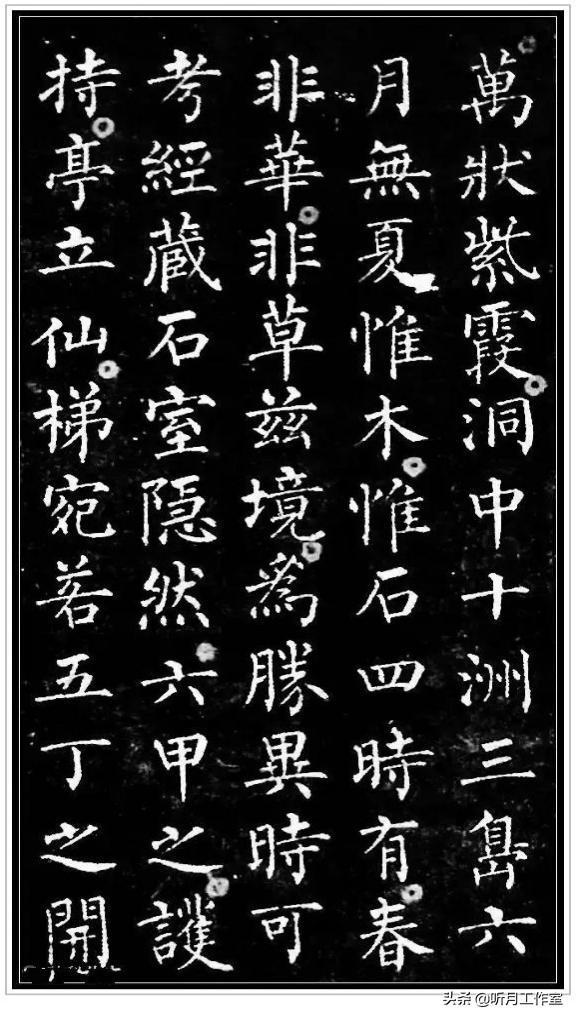 萬狀紫霞洞中十洲三島六
月無夏惟木惟石四時有春
非華非草茲境為勝異時可
考經藏石室隱然六甲之護
持亭立仙梯宛若五丁之開
头条 @听月工作室